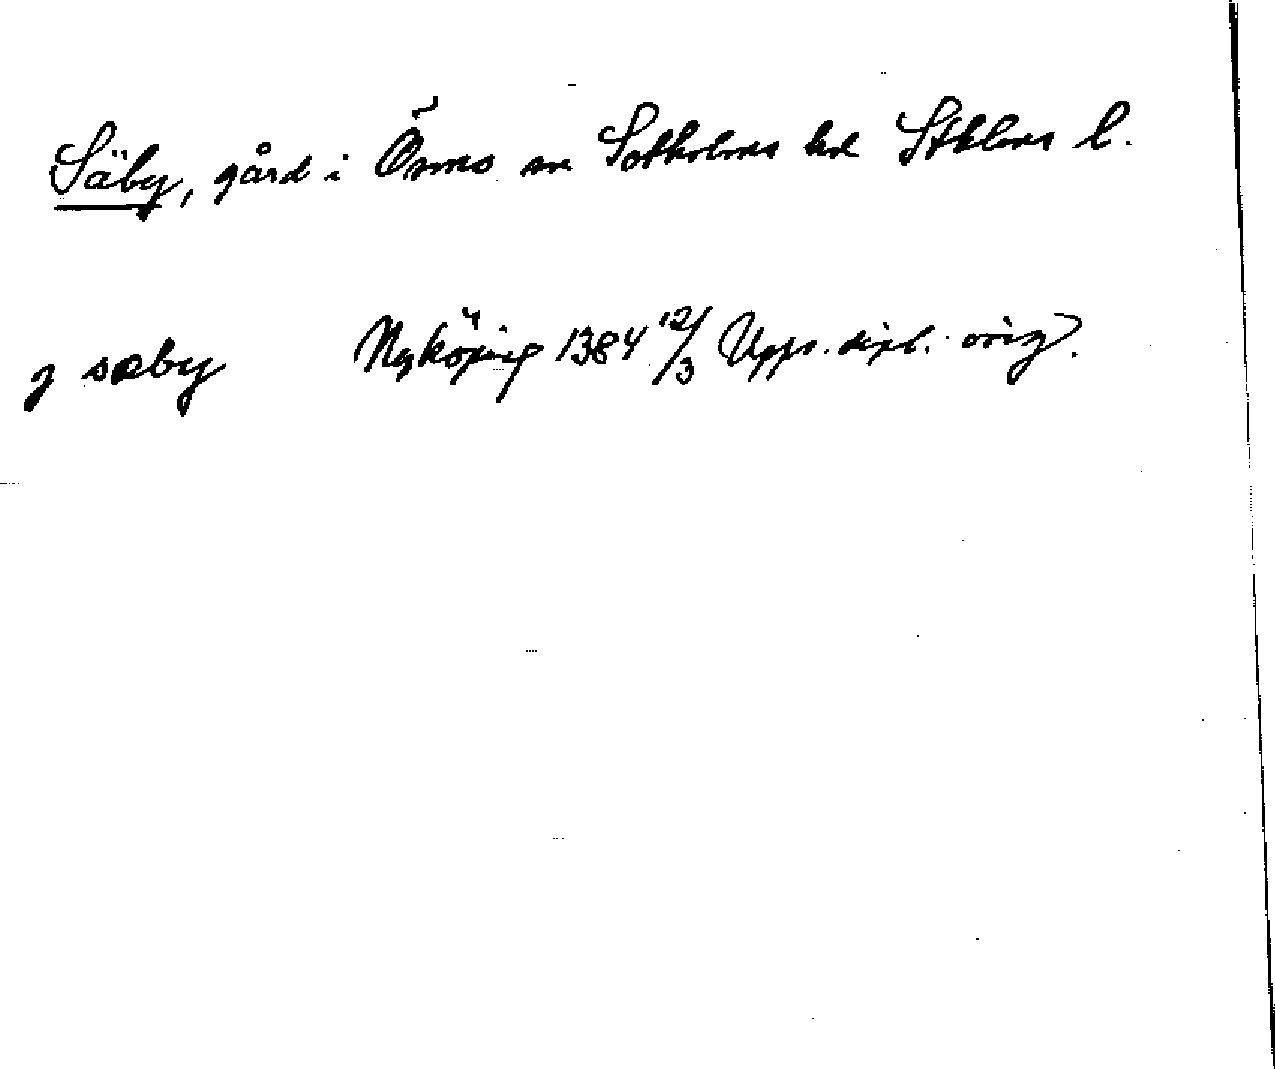 Säby, gård i Ösmo sn Sotholms hd Sthlms l.
j sæby Nyköping 1384 12/3 Upps. dipl. orig.